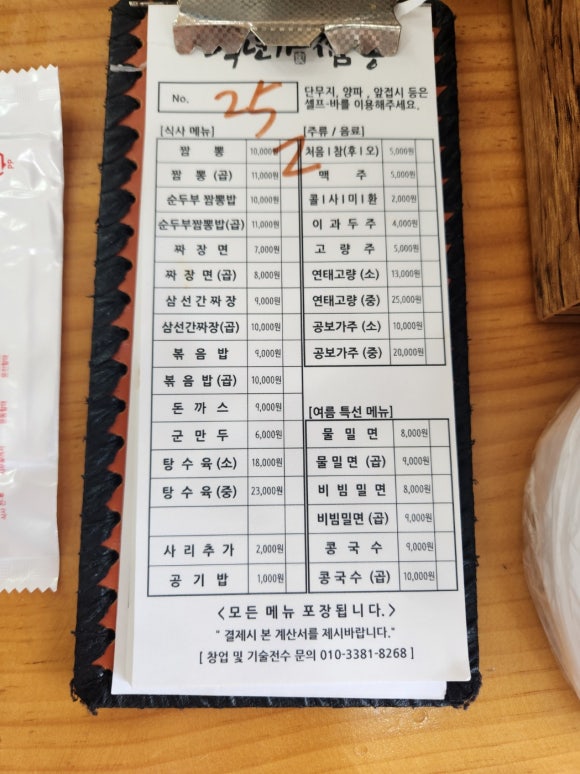 No. 25
2
단무지, 양파, 앞접시 등은
셀프-바를 이용해주세요.
[식사 메뉴]
짬 뽕 10,000원
짬 뽕 (곱) 11,000원
순두부 짬뽕밥 10,000원
순두부짬뽕밥(곱) 11,000원
짜 장 면 7,000원
짜 장 면 (곱) 8,000원
삼 선 간 짜 장 9,000원
삼선간짜장(곱) 10,000원
볶 음 밥 9,000원
볶 음 밥 (곱) 10,000원
돈 까 스 9,000원
군 만 두 6,000원
탕 수 육 (소) 18,000원
탕 수 육 (중) 23,000원
사 리 추 가 2,000원
공 기 밥 1,000원
[주류 / 음료]
처음 l 참(후 l 오) 5,000원
맥 주 5,000원
콜 l 사 l 미 l 환 2,000원
이 과 두 주 4,000원
고 량 주 5,000원
연태고량 (소) 13,000원
연태고량 (중) 25,000원
공보가주 (소) 10,000원
공보가주 (중) 20,000원
[여름 특선 메뉴]
물 밀 면 8,000원
물 밀 면 (곱) 9,000원
비 빔 밀 면 8,000원
비빔밀면 (곱) 9,000원
콩 국 수 9,000원
콩 국 수 (곱) 10,000원
<모든 메뉴 포장 됩니다.>
" 결제시 본 계산서를 제시바랍니다."
[ 창업 및 기술전수 문의 010-3381-8268 ]
PP